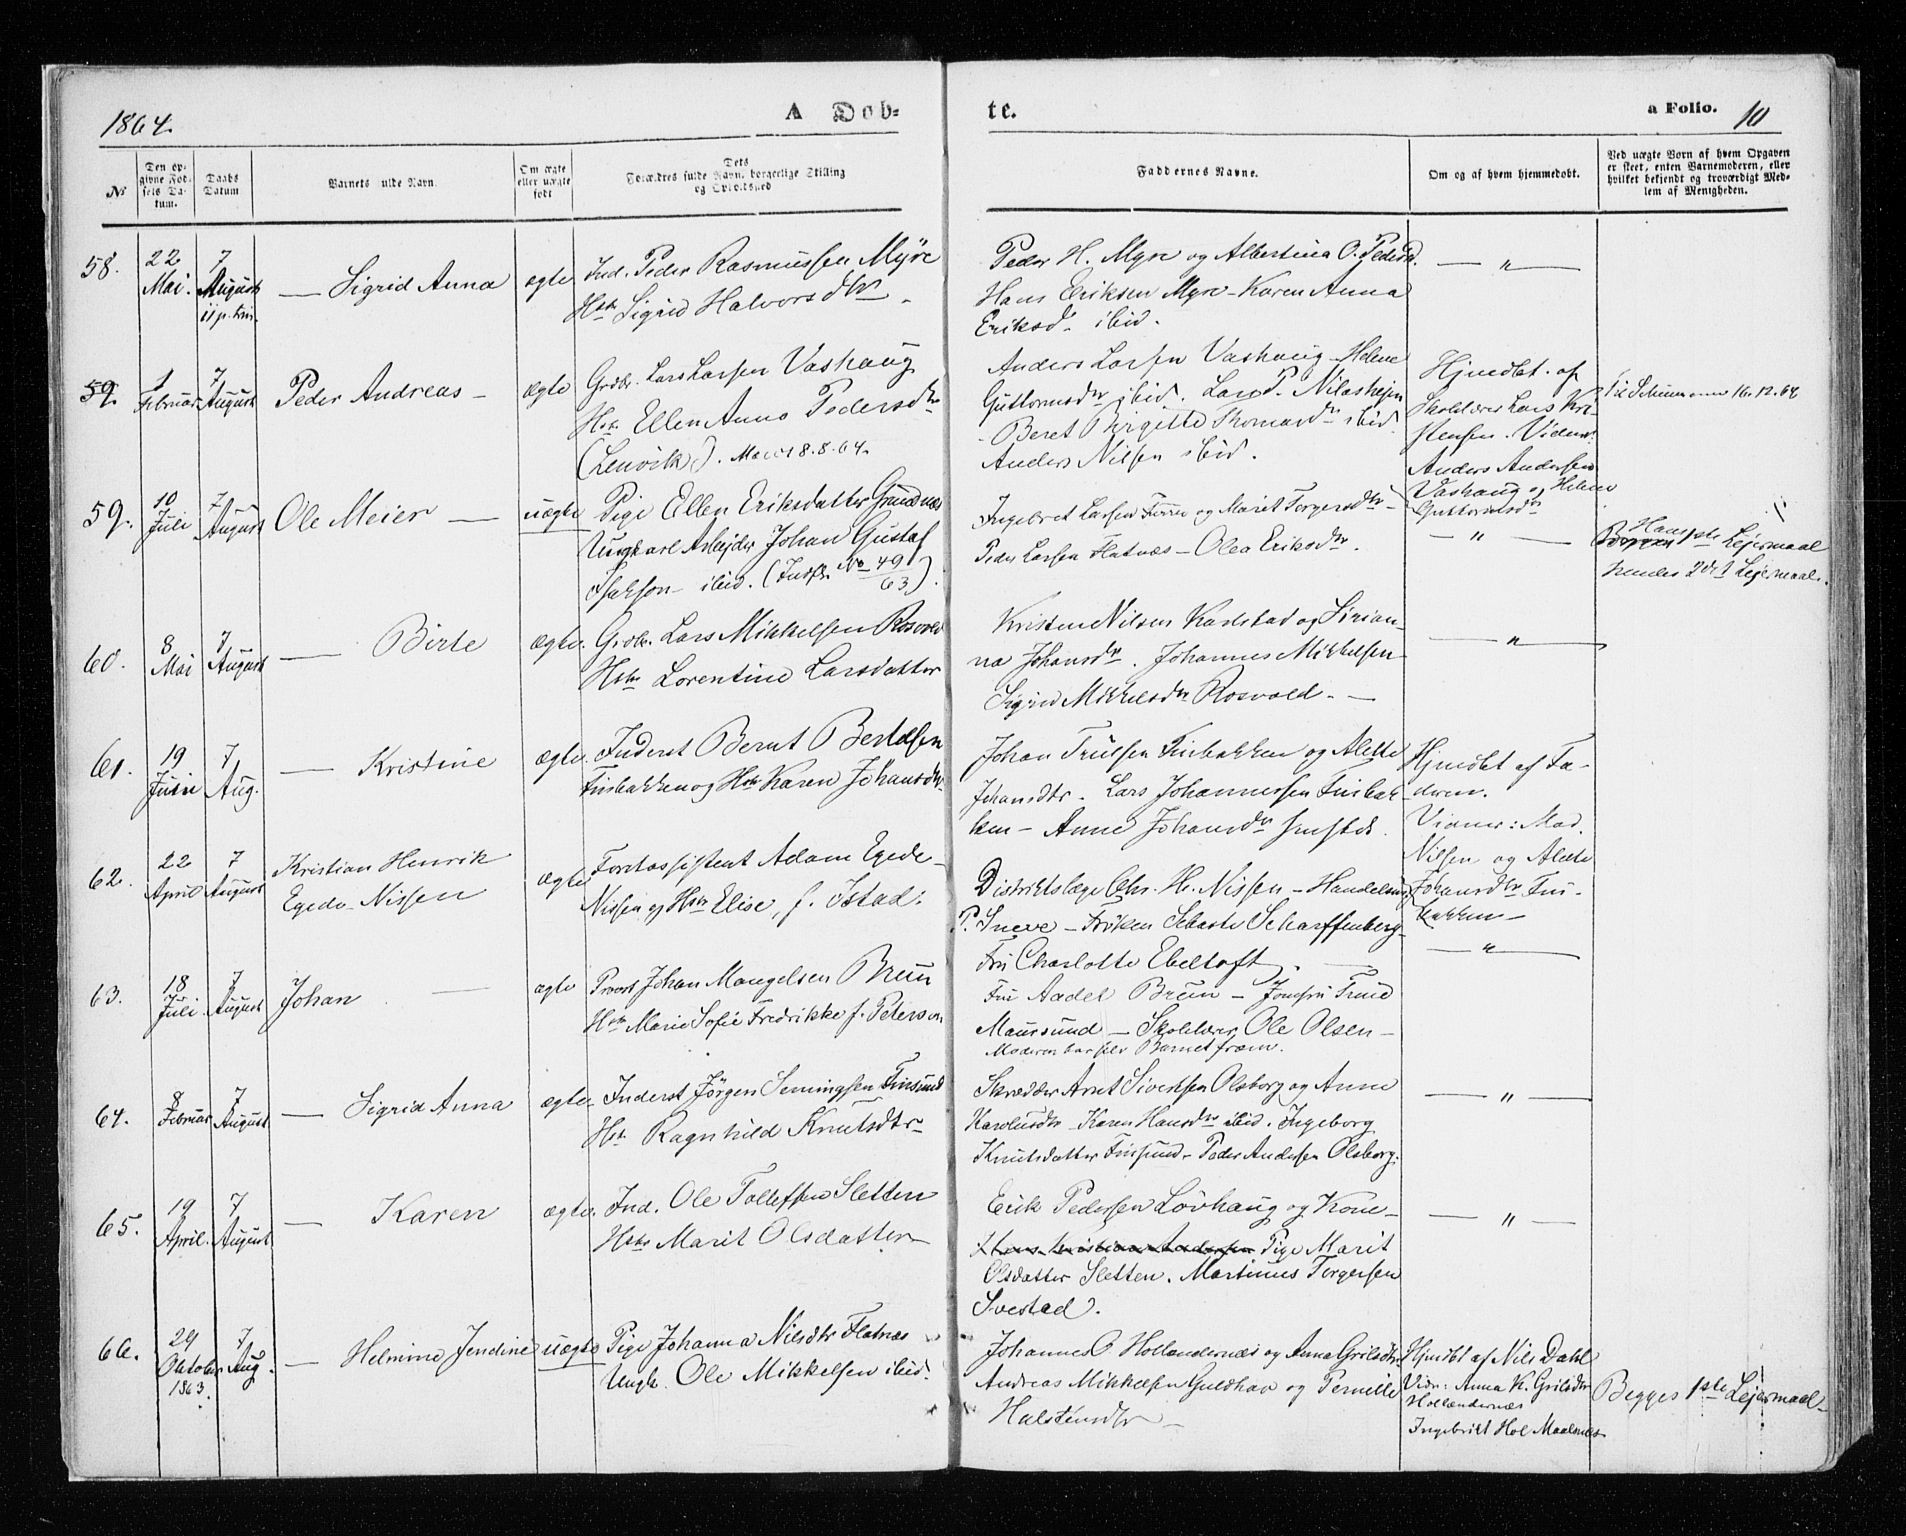 1864.
A Døb-
te.
a Folio. 10
No
Den opgivne Fødsels Datum.
Daabs Datum
Barnets fulde Navn.
Om ægte eller uægte født
Dets Forældres fulde Navn, borgerlige Stilling og Opholdssted
Faddernes Navne.
Om og af hvem hjemmedøbt.
Ved uægte Børn af hvem Opgaven er skeet, enten Barnemoderen, eller hvilket bekjendt og troværdigt Medlem af Menigheden.
58.
22 Mai.
7 August
11 p. Trin.
— Sigrid Anna
ægte
Ind. Peder Rasmussen Myre
Hstr Sigrid Halvorsdtr —
Peder H. Myre og Albertina O. Pedersd.
Hans Eriksen Myre - Karen Anna
Eriksd. ibid.
— " —
59.
1 Februar
7 August
Peder Andreas —
ægte
Grdbr. Lars Larsen Vashaug
Hstr Ellen Anna Pedersdtr
(Lenvik).
8.8.64.
Anders Larsen Vashaug - Helene
Guttormsdtr ibid. Lars P.
- Beret Birgitte Thomasdtr ibid
Anders Nilsen ibid.
Hjmdbt. af
Skolelærer Lars Kri-
stensen. Vidner:
Anders Andersen
Vashaug og Helene
Guttormsdtr
16.12.64
59.
10 Juli
7 August
Ole Meier —
uægte
Pige Ellen Eriksdatter Grundnæs
Ungkarl Arbejder Johan Gustaf
Isakson - ibid. (Indfl. No 49/63).
Ingebret Larsen og Marit Torgersdtr -
Peder Larsen Flatnæs - Olea Eriksdtr.
— " —
Hans 1ste Lejermaal
hendes 2det Lejermaal.
60.
8 Mai
7 August
— Birte
ægte.
Grdbr. Lars Mikkelsen Rosvold
Hstr Lorentine Larsdatter
Kristen Nilsen Karlstad og Sirian-
na Johansdtr. Johannes Mikkelsen
Sigrid Mikkelsdtr Rosvold. —
— " —
61.
19 Juni
7 Aug.
— Kristine
ægte.
Inderst Bernt Bertelsen
Finbakken og Hstr Karen Johansdtr
Johan Trulsen Finbakken og Alette
Johansdtr. Lars Johannessen Finbak-
ken - Anne Johansdtr
Hjmdbt af Fa-
deren.
Vidner: Mad.
Nilsen og Alette
Johansdtr Fin-
bakken —
62.
22 April
7 August
Kristian Henrik
Egede-Nissen
ægte
Forstassistent Adam Egede-
Nissen og Hstr Elise, f. Østad.
Distriktslæge Chr. H. Nissen - Handelsm.
P. Sneve - Frøken Sebaste Scharffenberg
Fru Charlotte Ebeltoft.
— " —
63.
18 Juli
7 August
Johan —
ægte
Provst Johan Mangelsen Brun
Hstr Marie Sofie Fredrikke f. Peterson
Fru Aadel Brun - Jomfru Trine
Maursund - Skolelærer Ole Olsen -
Moderen bar selv Barnet frem.
64.
8 Februar
7 August
— Sigrid Anna
ægte
Inderst Jørgen Semingsen Finsund
Hstr Ragnhild Knutsdtr
Skrædder Arnt Sivertsen Olsborg og Anne
Karolusdtr - Karen Hansdtr ibid. Ingeborg
Knutsdatter Finsund - Peder Andersen Olsborg.
— " —
65.
19 April.
7 August
— Karen
ægte.
Ind. Ole Tollefsen Sletten
Hstr Marit Olsdatter —
Erik Pedersen Løvhaug og Kone -
Hans Kristian Andersen Pige Marit
Olsdatter Sletten. Martinus Torgersen
Svestad.
— " —
66.
29 Oktober 1863.
7 Aug.
— Helmine Jendine
uægte
Pige Johanna Nilsdtr Flatnæs
Ungk. Ole Mikkelsen ibid.
Johannes O. Hollændernæs og Anna Grilsdtr
Andreas Mikkelsen Guldhav og Pernille
Halstensdtr —
Hjmdbt af Nils Dahl
Vidn: Anna K. Grilsdtr
Hollændernæs
Ingebrikt Hol Maalsnes
Begges 1ste Lejermaal